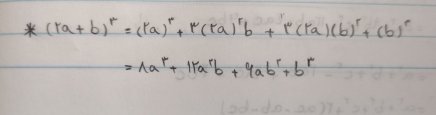 * (۲a + b)^۳ = (۲a)^۳ + ۳(۲a)^۲b + ۳(۲a)(b)^۲ + (b)^۳
= ۸a^۳ + ۱۲a^۲b + ۶ab^۲ + b^۳